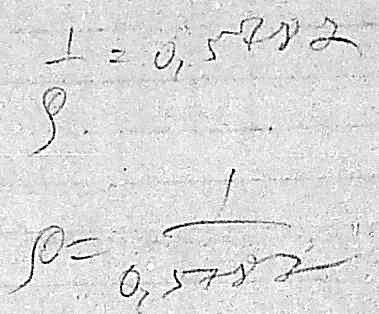 1/ρ = 0,5782
ρ = 1/0,5782